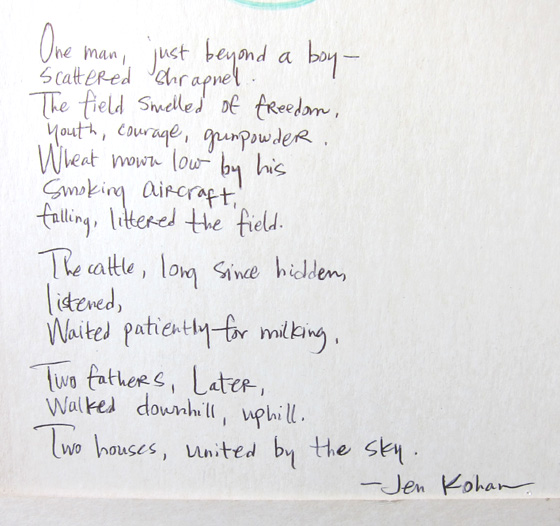 One man, just beyond a boy—
scattered shrapnel.
The field smelled of freedom,
youth, courage, gunpowder.
Wheat mown low by his
smoking aircraft,
falling, littered the field.
The cattle, long since hidden,
listened,
Waited patiently for milking.
Two fathers, Later,
Walked downhill, uphill.
Two houses, united by the sky.
—Jen Kohan